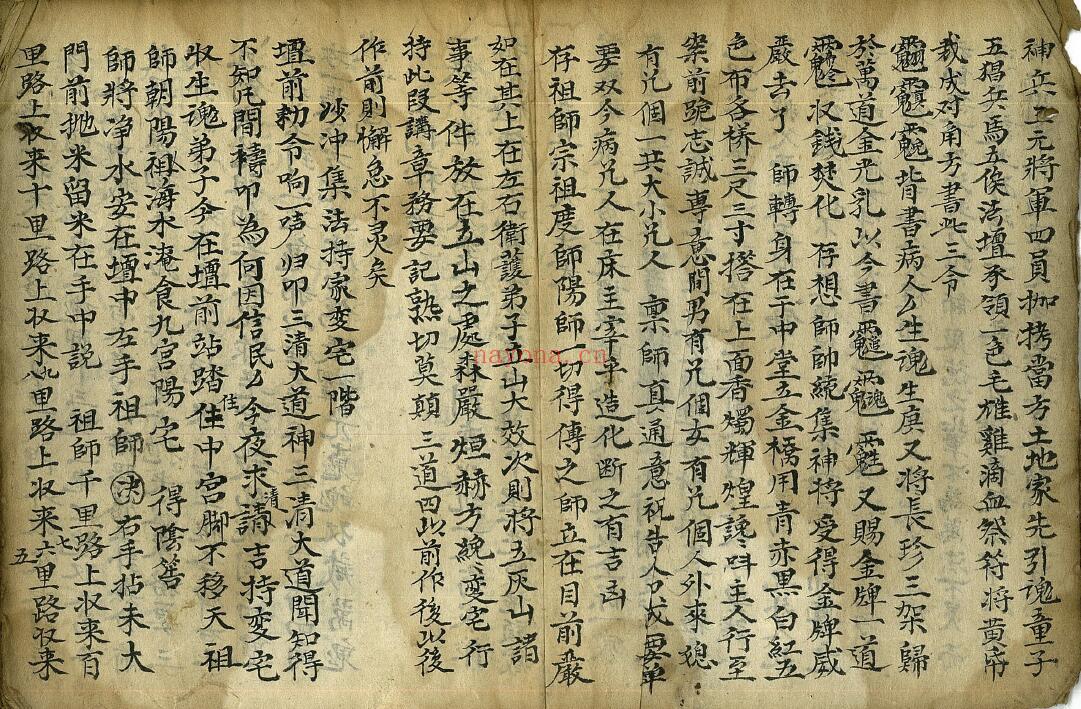 神兵上元將軍四員枷拷當方土地家先引魂童子
五猖兵馬五候法壇承領一色毛雄雞滴血祭符將黄布
裁成对角方書此三令
背書病人厶生魂生庚又將長珍三架歸
於萬道金光乳以今書又賜金牌一道
収錢焚化存想師帥統集神將受得金牌威
嚴去了 師轉身在于中堂立金橋用青赤黑白紅五
色布各橋三尺三寸搭在上面香燭輝煌讒呌主人行至
案前跪志誠專意間男有兄個女有兄個人外來
有兄個一共大小兄人 禀師真通意祝告人口或要单
要双今病兄人在床主宰 造化断之有吉凶
存祖師宗祖度師陽師一切得傳之師立在目前嚴
如在其上在左右衛護弟子立山大效次則將五灰山諸
事等件放在立山之處森嚴烜赫方纔变宅行
持此段講章務要記熟切莫顛三道四以前作後以後
作前則懈怠不灵矣
沙冲集法持家变宅一階
壇前勅令响一声归叩三清大道神三清大道聞知得
不知凡間禱叩為何因信民厶今夜求清請吉持变宅
収生魂弟子今在壇前站踏住中宮脚不移天祖
師朝陽祖海水淹食九宮陽宅 得陰筶
師將净水安在壇中左手祖師决右手拈未大
門前抛米留米在手中説 祖師千里路上収来百
里路上収来十里路上収来八九里路上収来六七里路収来
五